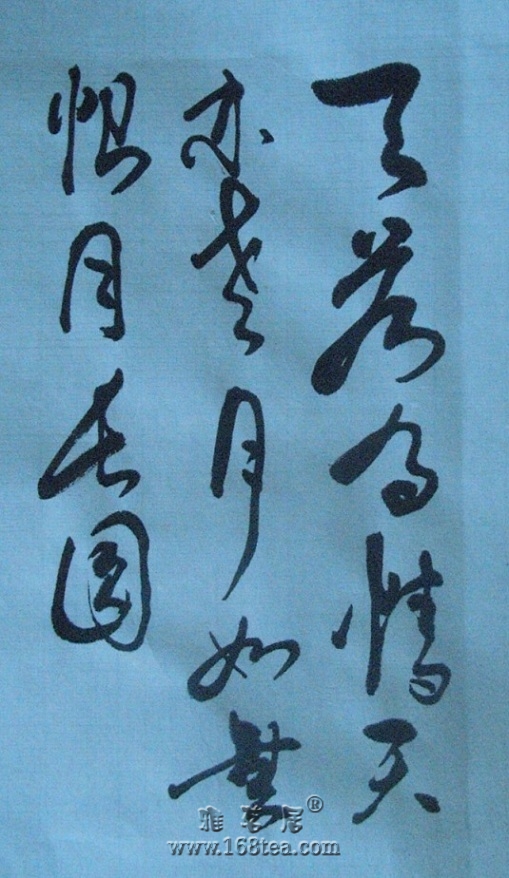 天若有情天
亦老月如無
恨月長圆
雅茗居®
www.168tea.com